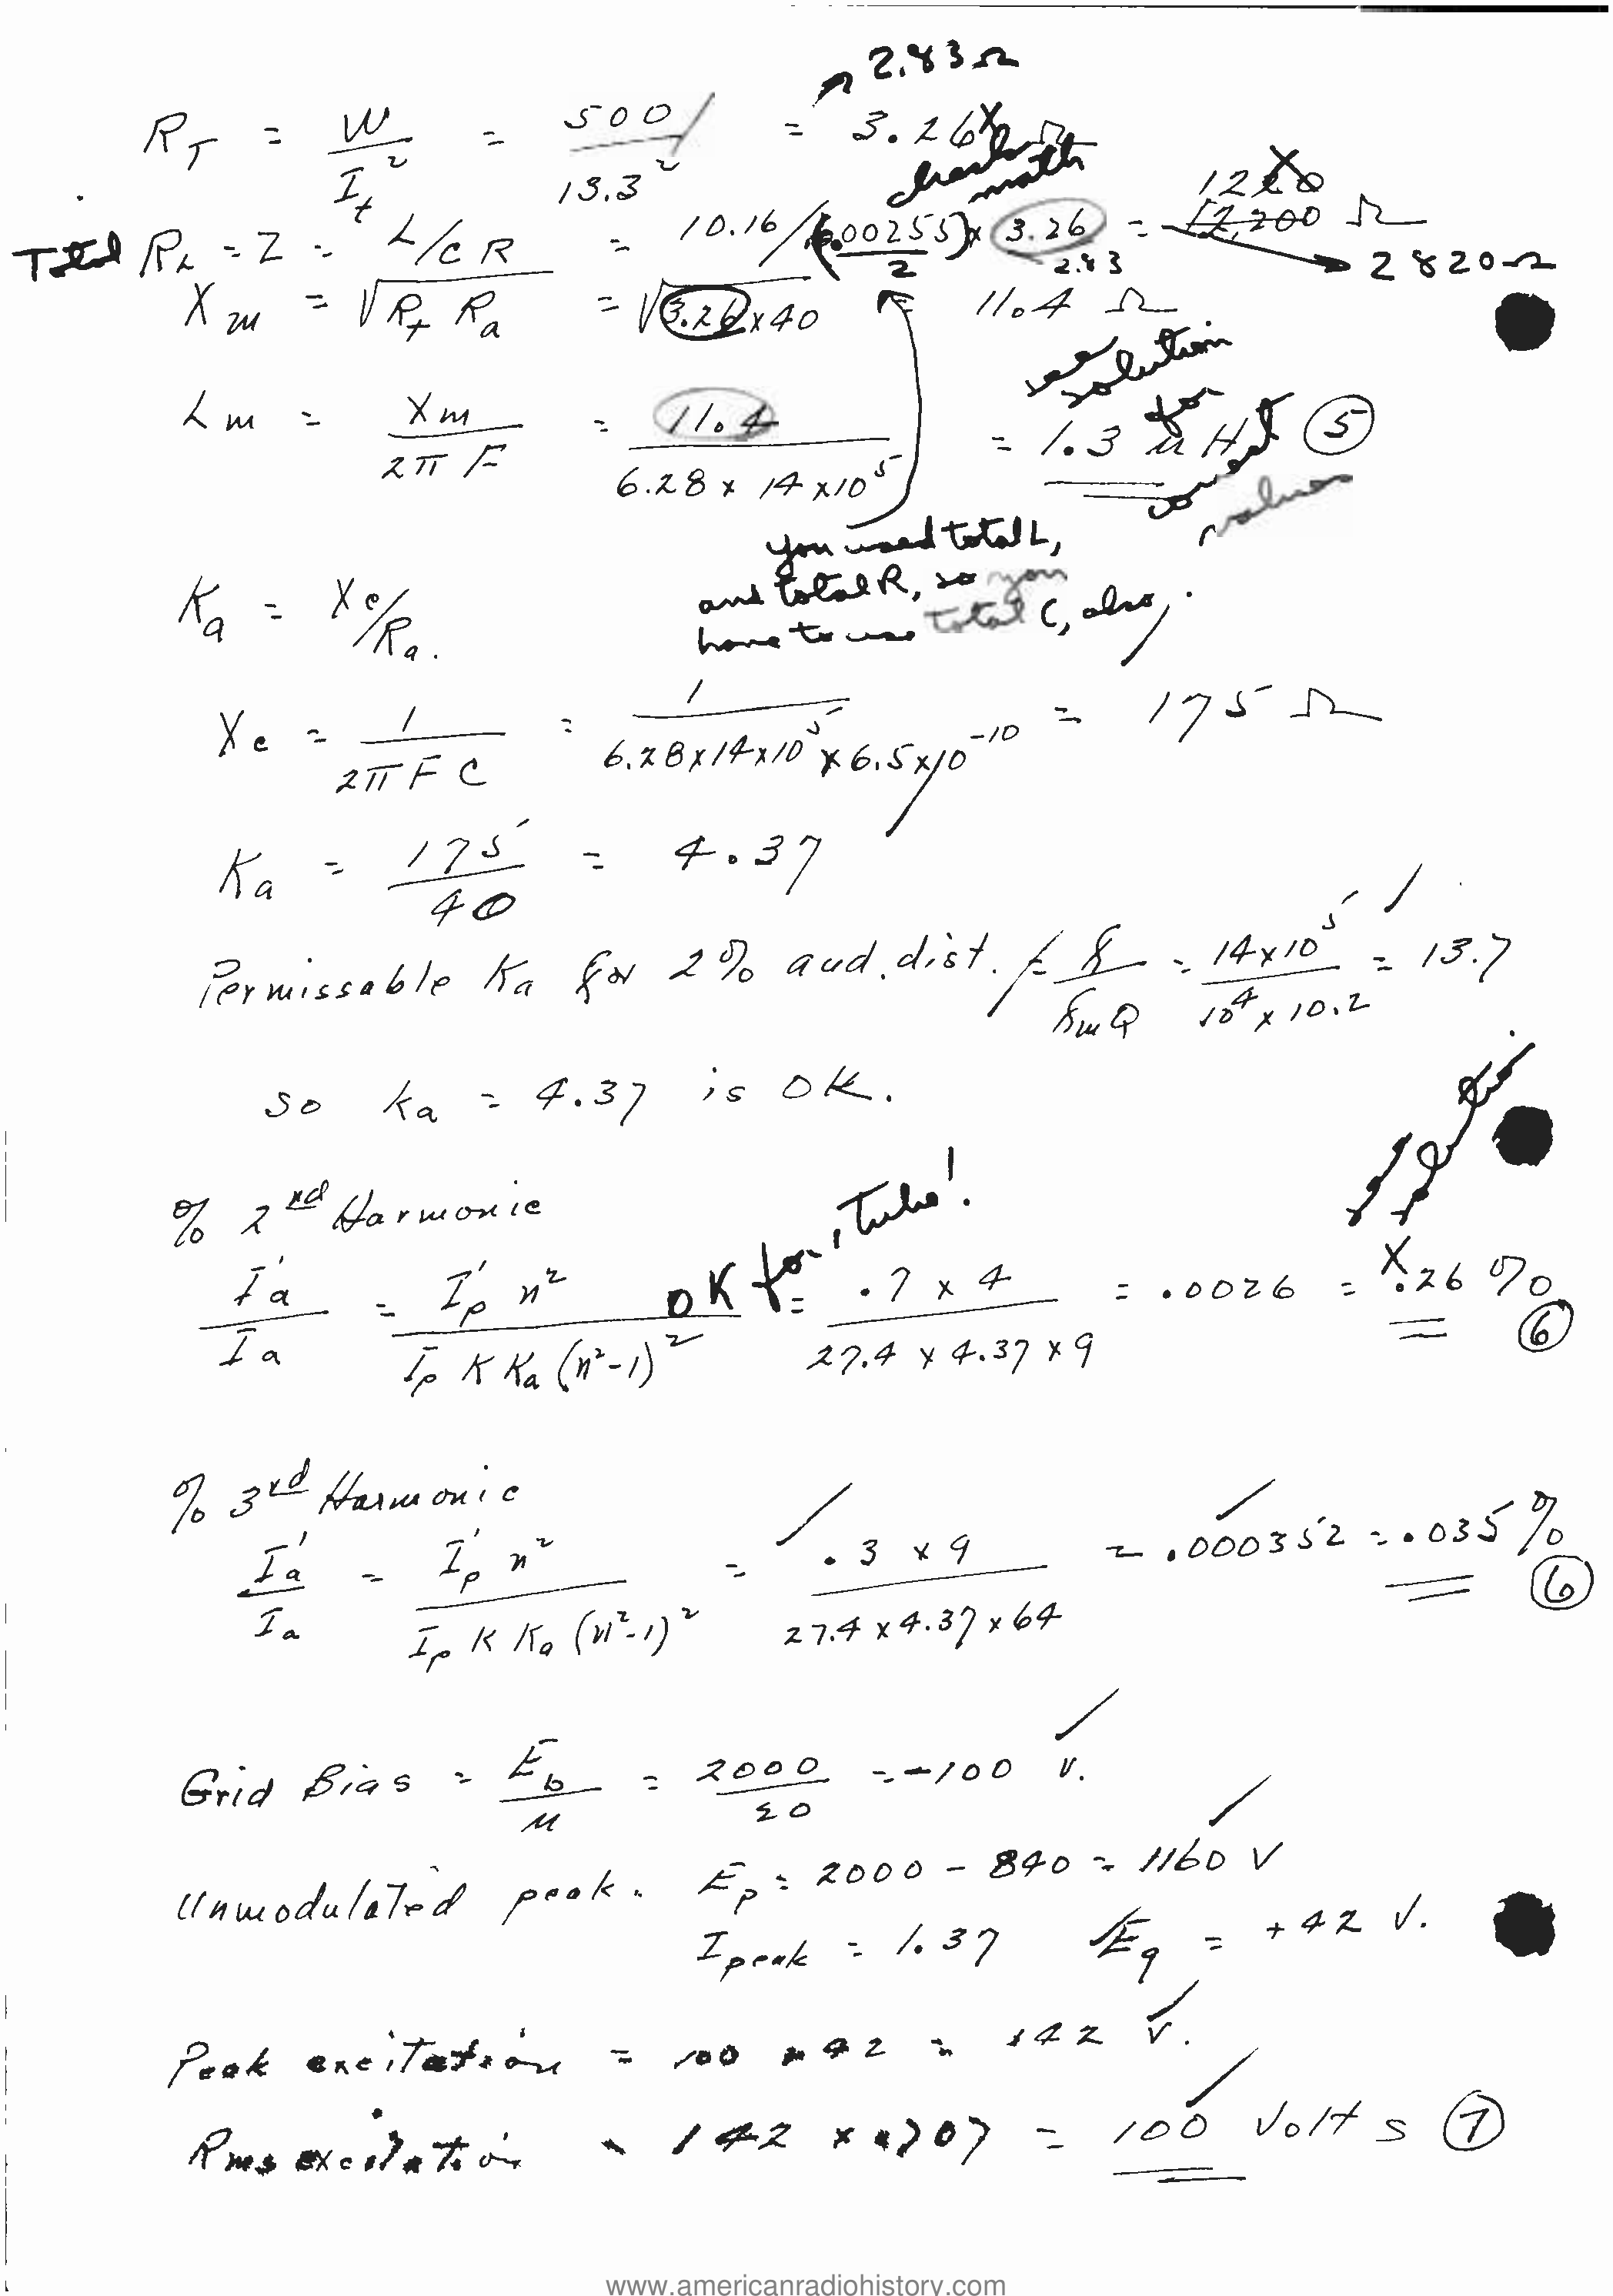 2.83 Ω
R_T = W / I_t² = 500 / 13.3² = 3.26 Ω X
check math
Total R_L = Z = L/CR = 10.16 / (.00255 / 2) x 3.26 = 12,200 Ω
1220 X
2.83
2820 Ω
X_m = √(R_t R_a) = √(3.26 x 40) = 11.4 Ω
see solution for correct values
L_m = X_m / 2π F = 11.4 / 6.28 x 14 x 10⁵ = 1.3 μH (5)
you used total L,
and total R, so you
have to use total C, also.
K_a = X_c / R_a.
X_c = 1 / 2π F C = 1 / 6.28 x 14 x 10⁵ x 6.5 x 10⁻¹⁰ = 175 Ω
K_a = 175 / 40 = 4.37
Permissable Ka for 2% aud. dist. = f / f_m Q = 14 x 10⁵ / 10⁴ x 10.2 = 13.7
so ka = 4.37 is OK.
see solution.
% 2nd Harmonic
OK for 1 Tube!
I'a / Ia = I'p n² / Ip K Ka (n²-1)² = .7 x 4 / 27.4 x 4.37 x 9 = .0026 = X .26 % (6)
% 3rd Harmonic
I'a / Ia = I'p n² / Ip K Ka (n²-1)² = .3 x 9 / 27.4 x 4.37 x 64 = .000352 = .035 % (6)
Grid Bias = E_b / μ = 2000 / 20 = -100 v.
Unmodulated peak. Ep = 2000 - 840 = 1160 V
I peak = 1.37 Eg = +42 V.
Peak excitation = 100 + 42 = 142 V.
Rms excitation = 142 x .707 = 100 Volts (7)
www.americanradiohistory.com